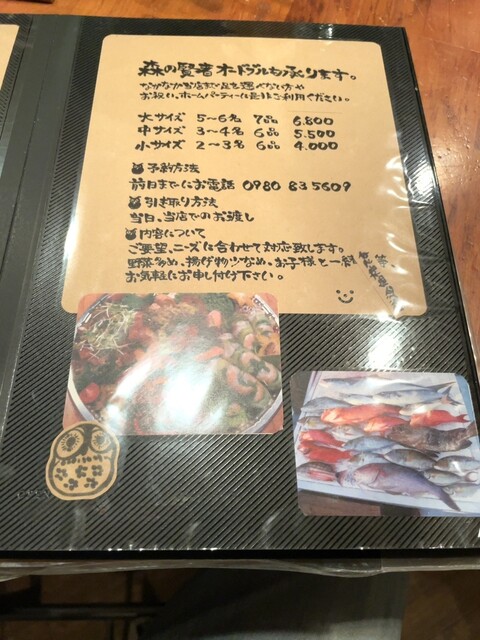 森の賢者オードブルも承ります。
なかなか当店まで足を運べない方や
お祝い、ホームパーティーに是非ご利用ください。
大サイズ 5～6名 7品 6.800
中サイズ 3～4名 6品 5.500
小サイズ 2～3名 6品 4.000
予約方法
前日までにお電話 0980 83 5609
引き取り方法
当日、当店でのお渡し
内容について
ご要望、ニーズに合わせて対応致します。
野菜多め、揚げ物少なめ、お子様と一緒
お気軽にお申し付け下さい。